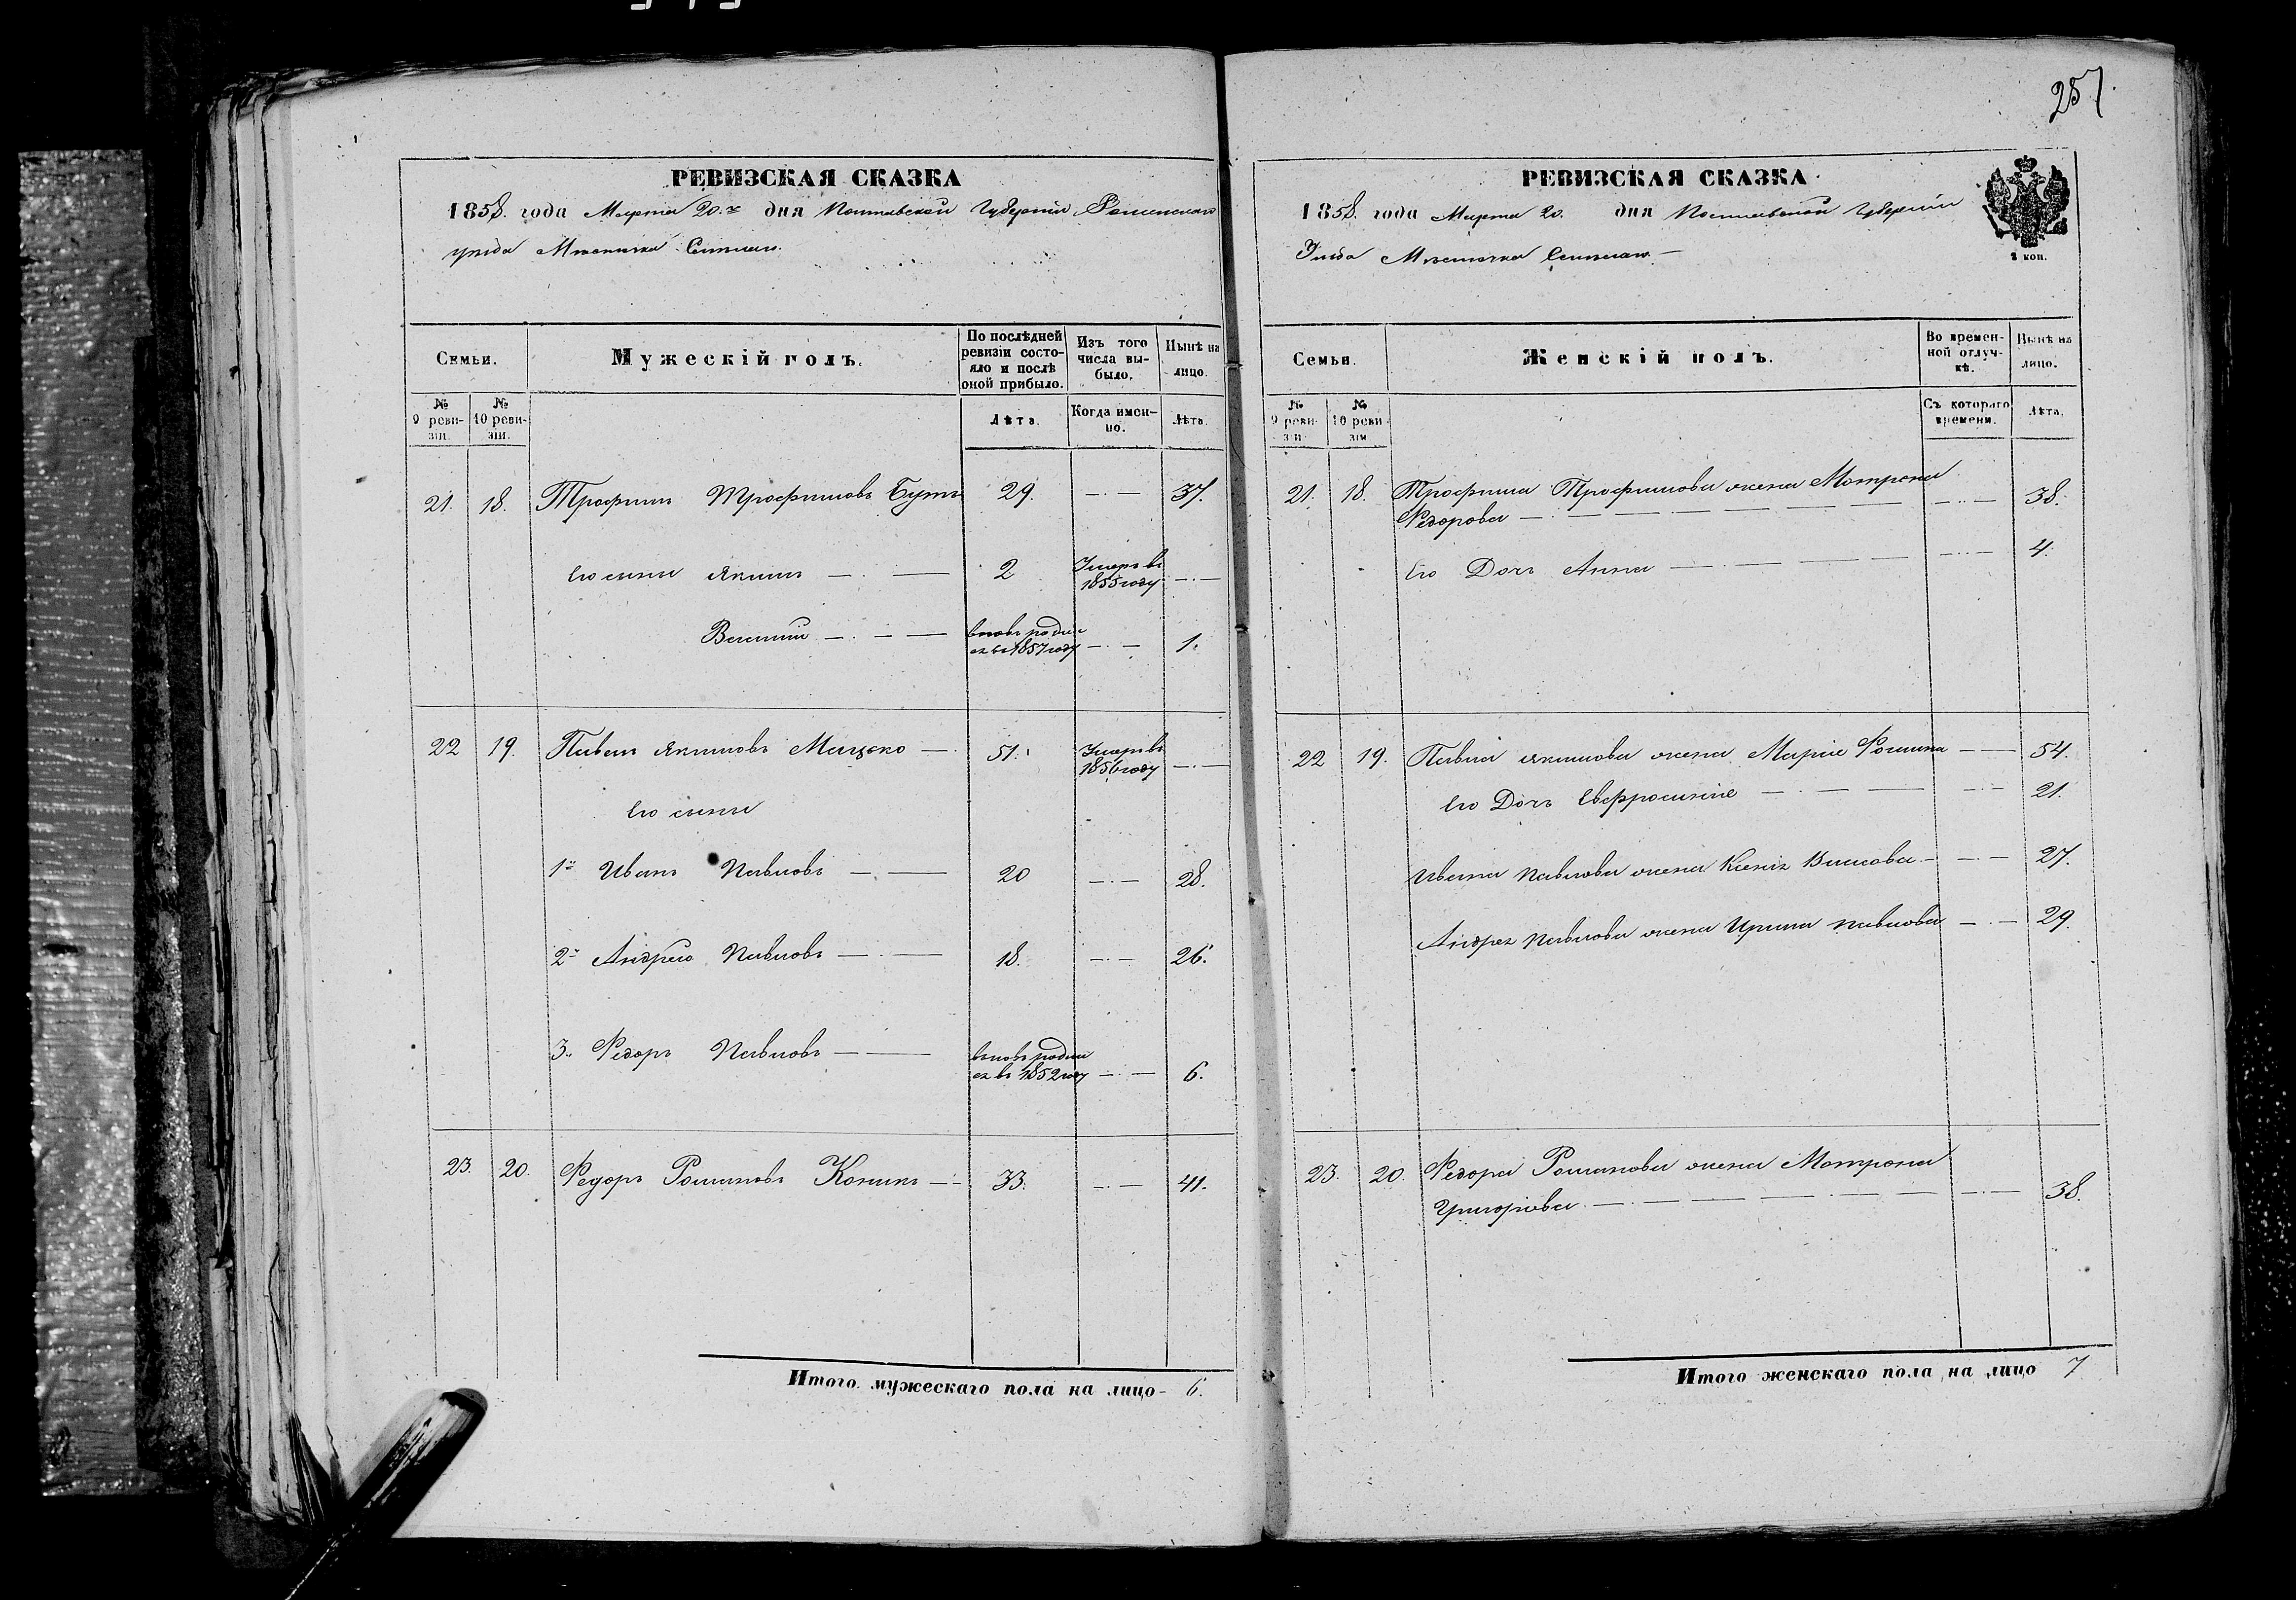 257.
РЕВИЗСКАЯ СКАЗКА
1858. года Марта 20.го дня Полтавской Губерніи Роменскаго
уѣзда Мѣстечка
Семьи.
Мужескій полъ.
По послѣдней ревизіи состояло и послѣ оной прибыло.
Изъ того числа выбыло.
Нынѣ на лицо.
№ 9 ревизіи.
№ 10 ревизіи.
Лѣта.
Когда именно.
Лѣта.
21. 18. Трофимъ Трофимовъ Бутъ 29. — · — 37.
Его сыны Якимъ — · — 2 Умеръ въ 1855 году — · —
Василій — · — — вновь родился въ 1857 году — · — 1.
22 19. Павелъ Якимовъ Мацко — 51. Умеръ въ 1856 году — · —
Его сыны
1й Иванъ Павловъ — · — 20 — · — 28.
2й Андрей Павловъ — · — 18. — · — 26.
3. Федоръ Павловъ — — вновь родился въ 1852 году — · — 6.
23. 20. Федоръ Романовъ Коникъ — — 33. — · — 41.
Итого мужескаго пола на лицо - 6.
РЕВИЗСКАЯ СКАЗКА
1858. года Марта 20. дня Полтавской Губерніи
Уѣзда Мѣстечка
2 коп.
Семьи.
Женскій полъ.
Во временной отлучкѣ.
Нынѣ на лицо.
№ 9 ревизіи
№ 10 ревизіи
Съ котораго времени.
Лѣта.
21. 18. Трофима Трофимова жена Мотрона
Федорова — · — — — · — 38.
Его Дочь Анна — · — — — · — 4.
22 19. Павла Якимова жена Марія Фомина — — 54.
Его Дочь Евфросинія — · — — — · — 21.
Ивана Павлова жена Ксенія — — · — 27.
Андрея Павлова жена Ирина Павлова — · — 29.
23. 20. Федора Романова жена Мотрона
Григорьева — · — — — · — 38.
Итого женскаго пола на лицо 7